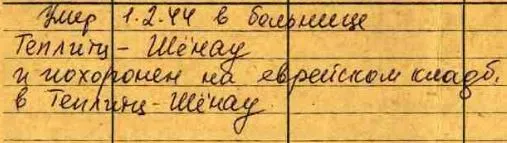 Умер 1.2.44 в больнице
Теплитц-Шёнау
и похоронен на еврейском кладб.
в Теплитц-Шёнау.